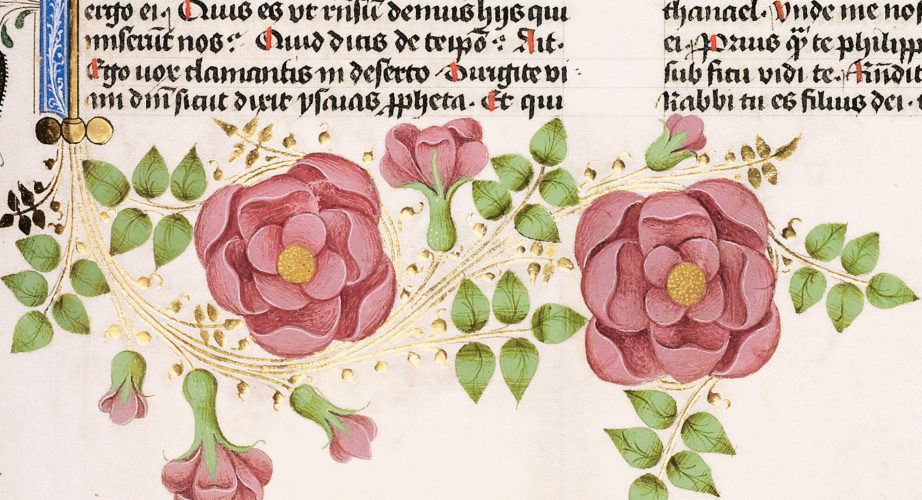 ergo ei. Quis es ut rñsũ demus hijs qui
miserũt nos: Quid dicis de teipõ: Ait.
Ego vox clamantis in deserto. Dirigite vi
am dñi sicut dixit ysaias ppheta. Et qui
thanael. Unde me no
ei. Prius q̃ te philipp
sub ficu vidi te. Rñdit
Rabbi tu es filius dei.